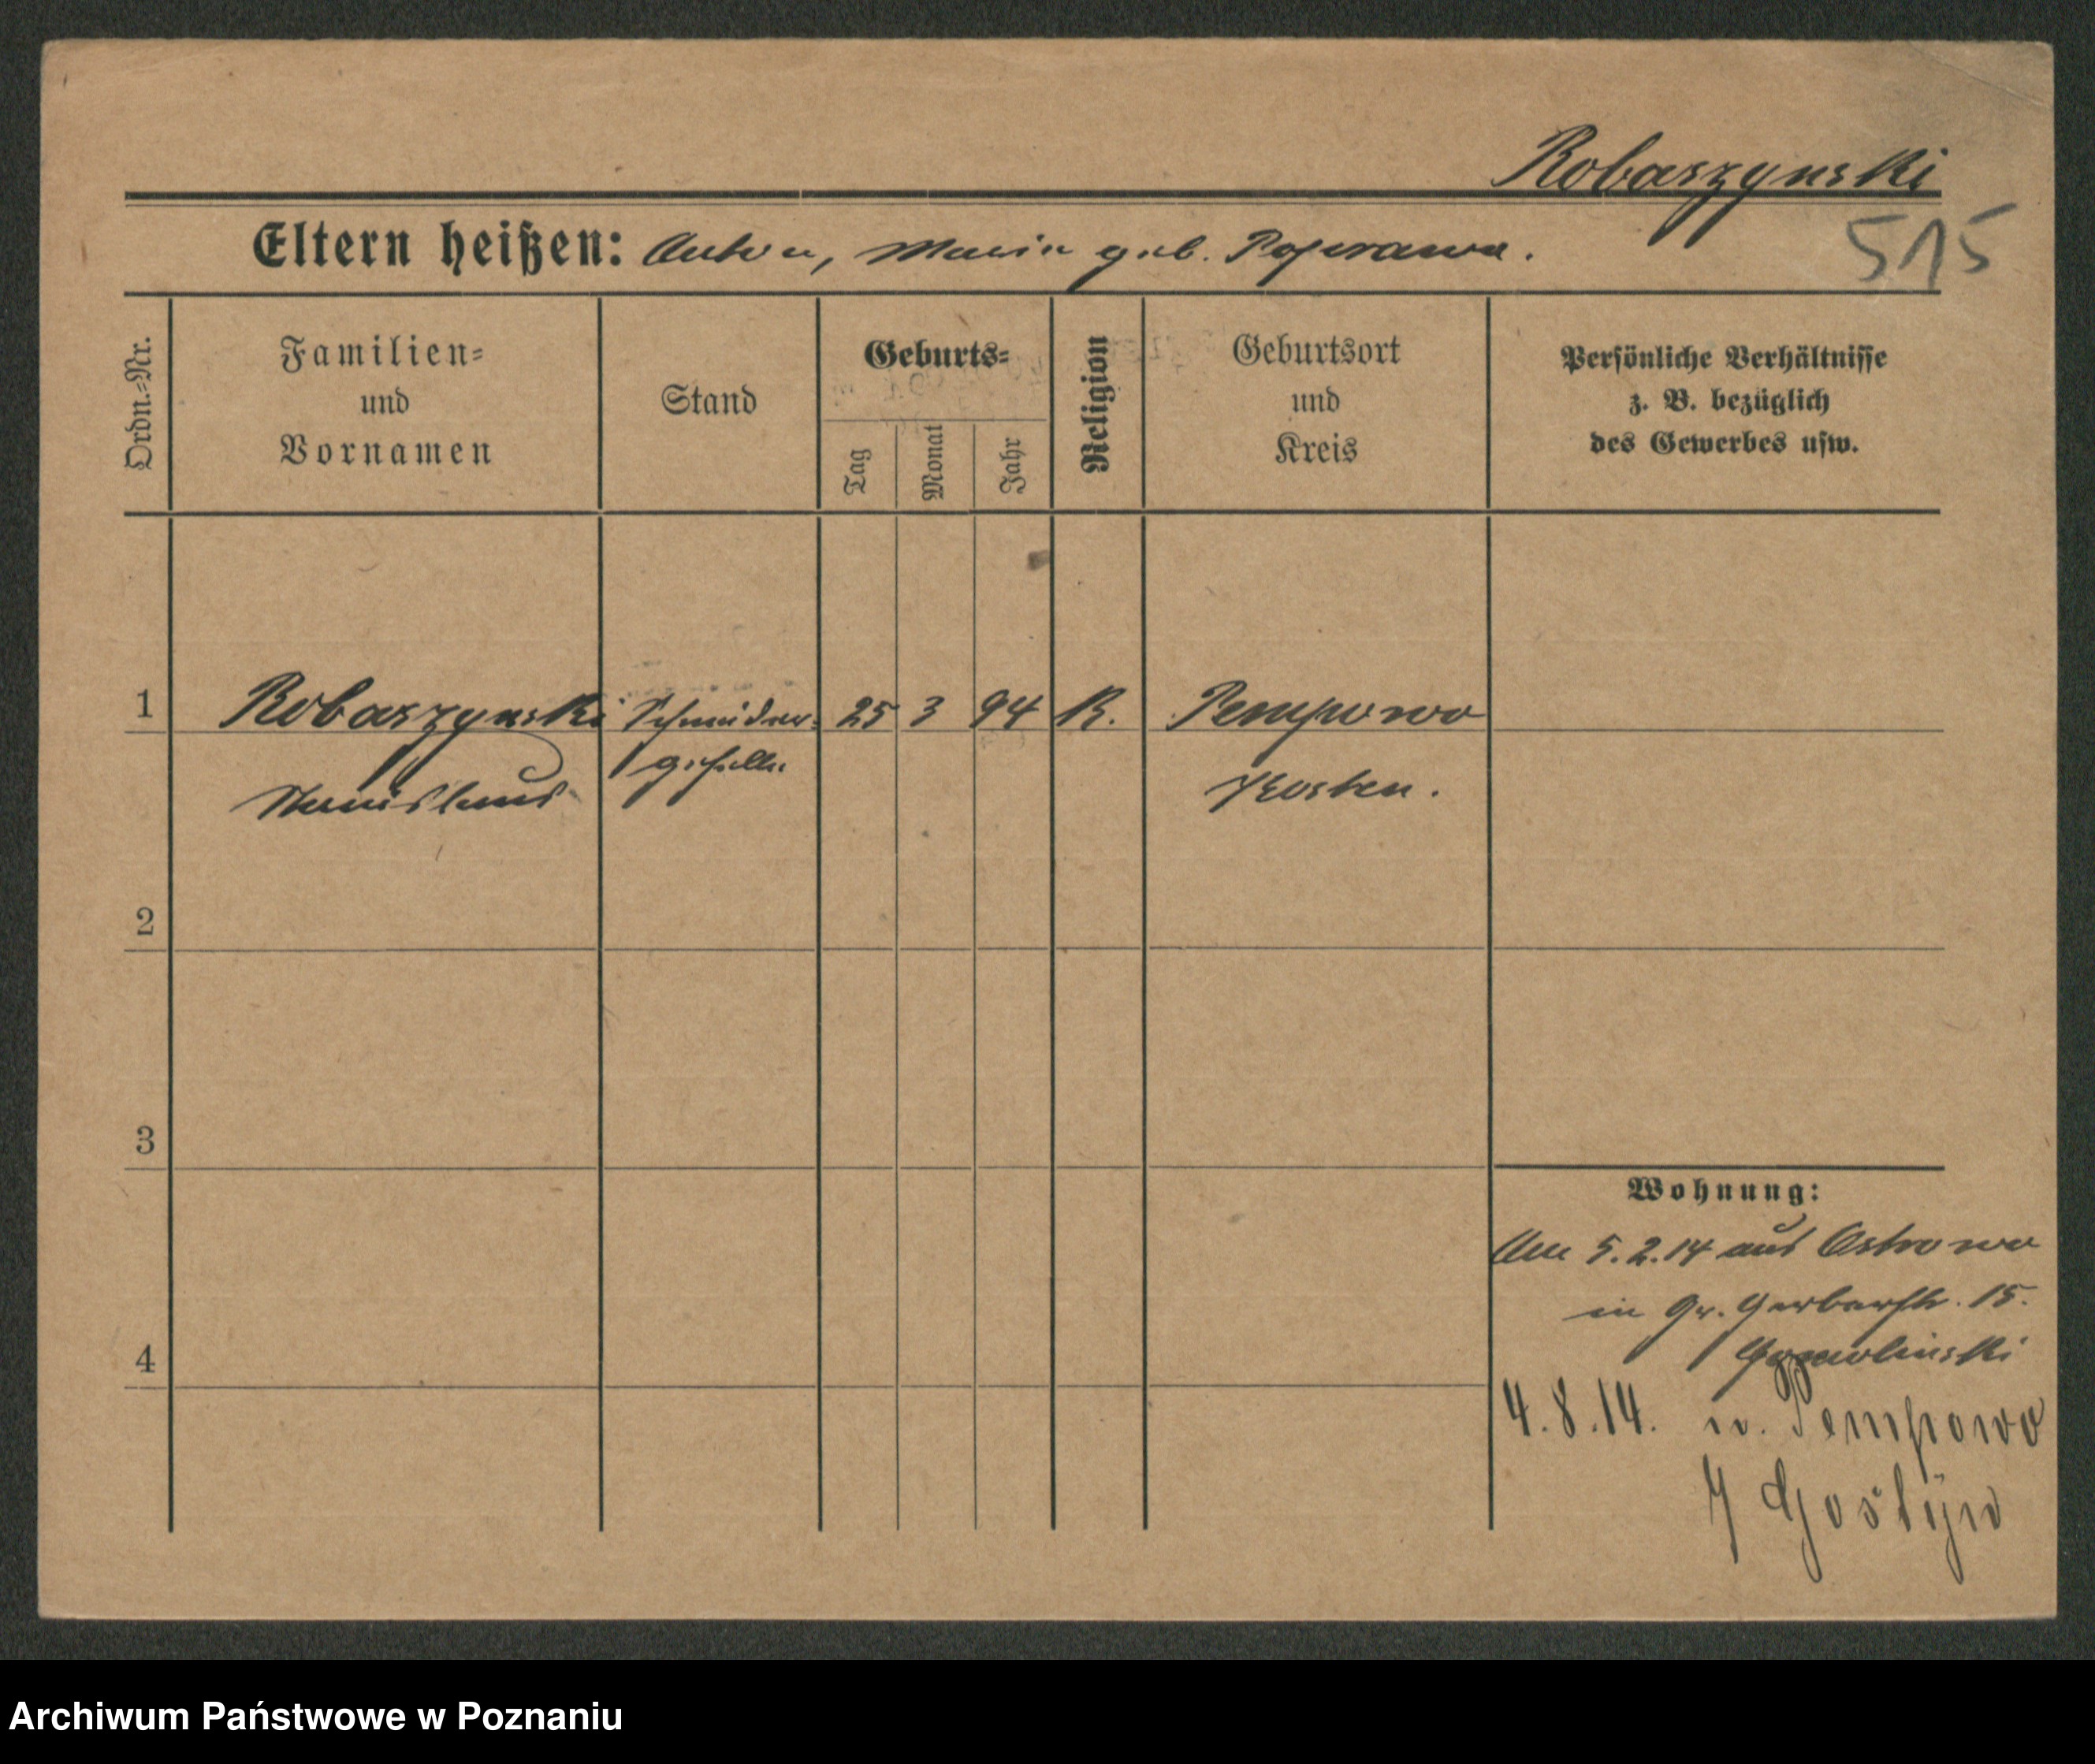 Robaszynski
Eltern heißen: Anton, Maria geb. Poprawa.
515
Ordn.-Nr.
Familien-
und
Vornamen
Stand
Geburts-
Tag
Monat
Jahr
Religion
Geburtsort
und
Kreis
Persönliche Verhältnisse
z. B. bezüglich
des Gewerbes usw.
1 Robaszynski Schneider- 25 3 94 K. Pempowo
Stanislaus geselle Kosten.
2
3
Wohnung:
Am 5.2.14 aus Ostrowo
in Gr. Gerberstr. 15.
4
4.8.14. n. Pempowo
Gostyn
Archiwum Państwowe w Poznaniu